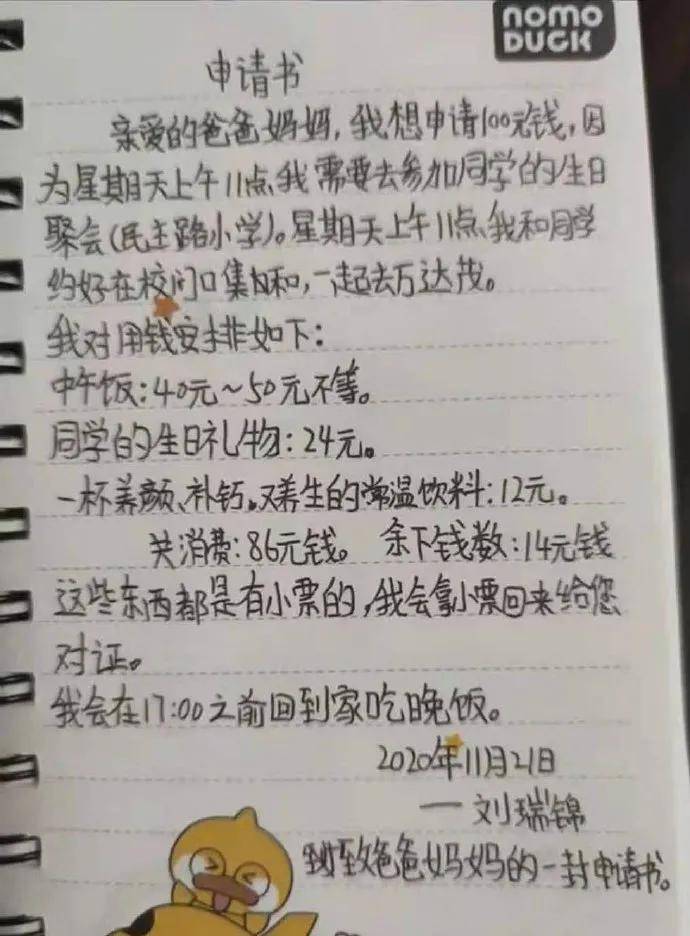 nomo
DUCK
申请书
亲爱的爸爸妈妈，我想申请100元钱，因
为星期天上午11点我需要去参加同学的生日
聚会(民主路小学)。星期天上午11点、我和同学
约好在校门口集和，一起去万达茂。
我对用钱安排如下：
中午饭：40元～50元不等。
同学的生日礼物：24元。
一杯养颜、补钙、又养生的常温饮料：12元。
共消费：86元钱。 余下钱数：14元钱
这些东西都是有小票的，我会拿小票回来给您
对证。
我会在17:00之前回到家吃晚饭。
2020年11月21日
——刘瑞锦
致爸爸妈妈的一封申请书。